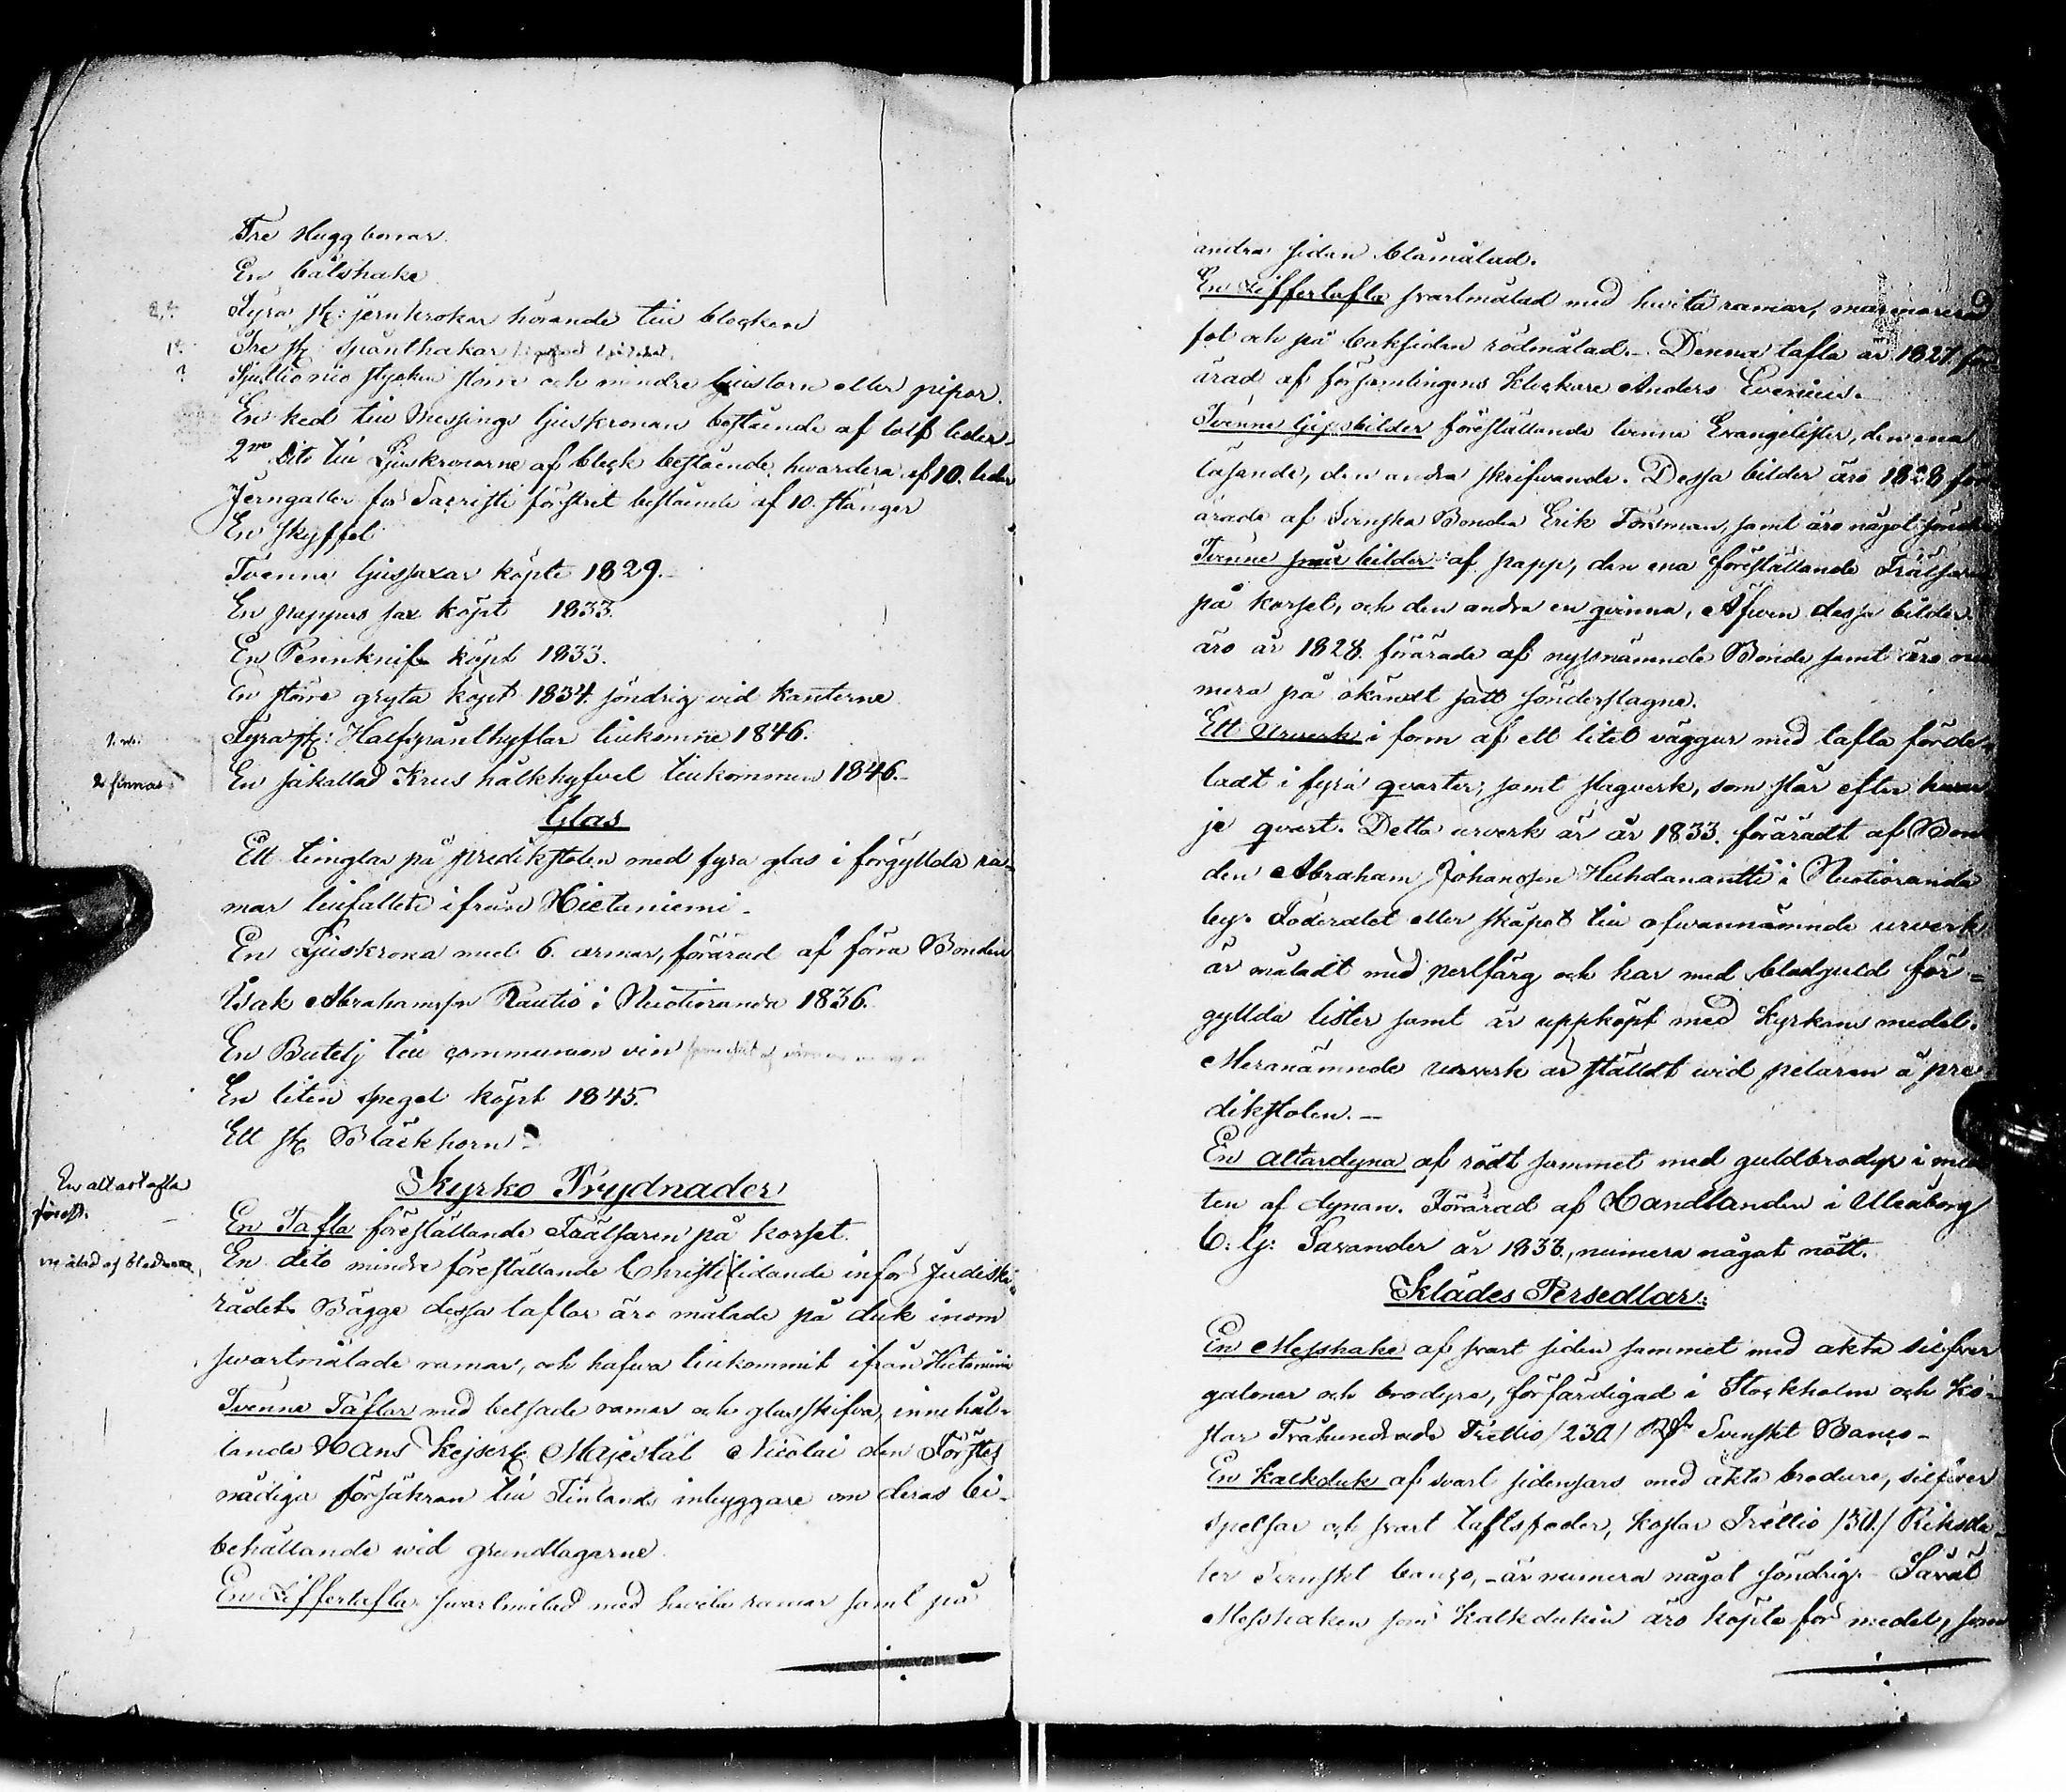 Tre Huggbenar.
En båtshake
Fyra st: jernkrokar hörande till blocken
Tre st spånthakar
Sjuttionio stycken större och mindre ljustorn eller pipor.
En ked till Messings ljuskronan bestående af tolf leder.
2ne Dito till Ljuskronorne af bleck bestående hvardera af 10. leder
Jerngaller för Sacristi fönstret bestående af 10. stänger
En skyffel
Tvenne ljussaxar köpte 1829.
En pappers sax köpt 1833.
En Pennknif köpt 1833.
En större gryta köpt 1834. söndrig vid kanterne
Fyra st: Halfspånthyflar tillkomne 1846.
2 finnas
En såkallad Krus hålkhyfvel tillkommen 1846.
Glas
Ett timglas på predikstolen med fyra glas i förgyllda ra=
mar tillfallet ifrån Hietaniemi.
En Ljuskrona med 6. armar, förärad af förra Bonden
Isak Abrahamsson Rautio i Nuotioranda 1836.
En Butelj till communion vin
En liten spegel köpt 1845.
Ett st Bläckhorn.
Kyrko Prydnader
En altartafla
förest.
En Tafla föreställande Frälsaren på korset.
målad af
En dito mindre föreställande Christi lidande inför Judiska
rådet. Bägge dessa taflor äro målade på duk inom
svartmålade ramar, och hafva tillkommit ifrån Hietaniemi
Tvenne Taflor med betsade ramar och glasskifva, innehål=
lande Hans Kejserl. Majestät Nicolai den Förstes
nådiga försäkran till Finlands inbyggare om deras bi-
behållande wid grundlagarne.
En Ziffertafla svartmålad med hvita ramar samt på
andra sidan blåmålad.
En Ziffertafla svartmålad med hwita ramar, marmorerad
fot och på baksidan rödmålad.- Denna tafla är 1827. för
ärad af församlingens klockare Anders Evenius.
Tvenne Gipsbilder föreställande tvenne Evangelister, den ena
läsande, den andra skrifvande. Dessa bilder äro 1828 för
ärade af Svenska Bonden Erik Forsman, samt äro något söndr
Tvenne små bilder af papp, den ena föreställande Frälsaren
på korset, och den andra en qvinna, Äfven dessa bilder
äro år 1828. förärade af nyssnämnde Bonde samt äro nu
mera på okändt sätt sönderslagne.
Ett Urverk i form af ett litet väggur med tafla förde=
ladt i fyra qvarter, samt slagverk, som slår efter hvar
je qvart. Detta urverk är år 1833. föräradt af Bon
den Abraham Johansson Huhdanantti i Nuotioranda
by. Foderalet eller skåpet till ofvannämnde urverk
är måladt med perlfärg och har med bladguld för=
gyllda lister samt är uppköpt med Kyrkans medel.
Meranämnde urverk är ställdt wid pelaren å pre
dikstolen.-
En altardyna af rödt sammet med guldbrodyr i mid
ten af dynan. Förärad af Handlanden i Uleåborg
C: G: Savander år 1833., numera något nött.
Klädes Persedlar.
En Messhake af svart siden sammet med äkta silfver
galoner och brodyre, förfärdigad i Stockholm och ko-
star Tvåhundrade Trettio /230/ Rdr Svenskt Banco-
En Kalkduk af svart sidensars med äkta brodure, silfver
spetsar och svart taftsfoder, kostar Trettio /30./ Riksda-
ler Svenskt banco, -är numera något söndrig. Såväl
Messhaken som Kalkduken äro köpte för medel, som